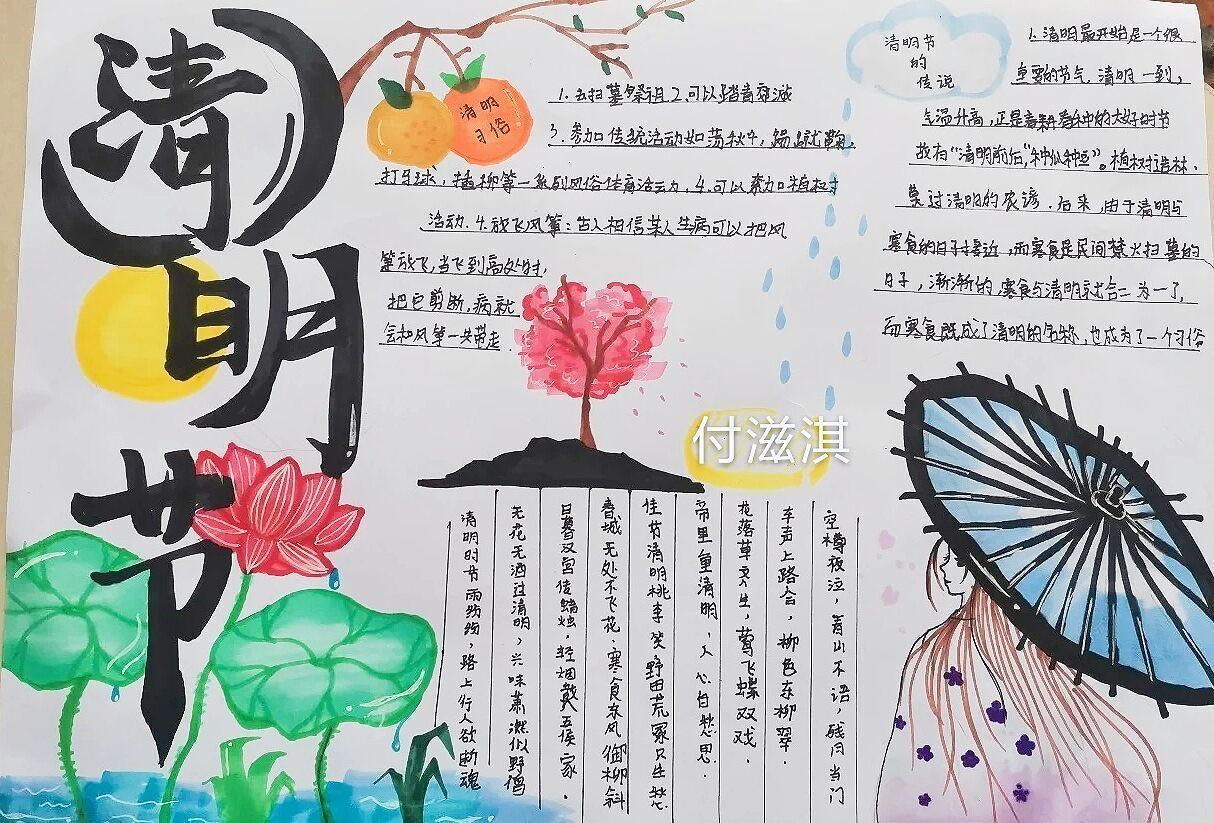 清明节
清明
习俗
1.去扫墓祭祖2.可以踏青郊
3.参加传统活动如荡秋4,蹋蹴鞠,
打马球,插柳等一系列风俗体育活动,4.可以参加植树
活动.4.放飞风筝:古人相信某人生病可以把风
筝放飞,当飞到高处时,
把它剪断,病就
会和风筝一块带走.
清明节
的
传说
1.清明最开始是一个很
重要的节气.清明一到,
气温升高,正是春耕春种的大好时节
故有“清明前后,种瓜种豆”。植树造林,
莫过清明的农谚.后来,由于清明与
寒食的日子接近,而寒食是民间禁火扫墓的
日子,渐渐的,寒食与清明就合二为一了,
而寒食既成了清明的名称,也成为了一个习俗
付滋淇
清明时节雨纷纷,路上行人欲断魂
无花无酒过清明,兴味萧然似野僧
日暮汉宫传蜡烛,轻烟散入五侯家.
春城无处不飞花,寒食东风御柳斜
佳节清明桃李笑.野田荒冢只生愁
帝里重清明,人心自愁思.
花落草齐生,莺飞蝶双戏.
车声上路合,柳色东城翠.
空樽夜泣,青山不语,残月当门